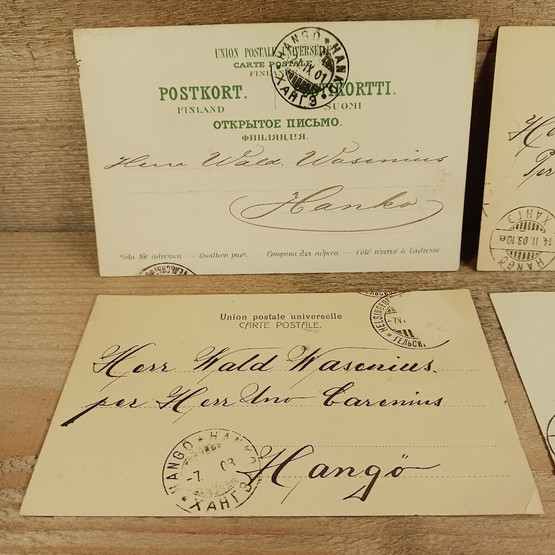 UNION POSTALE UNIVERSELLE
CARTE POSTALE
FINL
POSTKORT. POSTIKORTTI.
FINLAND SUOMI
ОТКРЫТОЕ ПИСЬМО.
ФИНЛЯНДІЯ.
HANGÖ HANKO
IX.01
ХАНГЭ
Herr Wald. Wasenius
Hanko
Sida för adressen. - Osoitteen puoli. - Сторона для адреса. - Côté réservé à l'adresse.
Union postale universelle
CARTE POSTALE.
HELSINGFOR
ГЕЛЬСИ
Herr Wald Wasenius.
per Herr Uno Carenius
Hangö
HANGÖ HANKO
-7. 03
ХАНГЭ
ХАНГЭ
14.II.03.10e.
HANGÖ